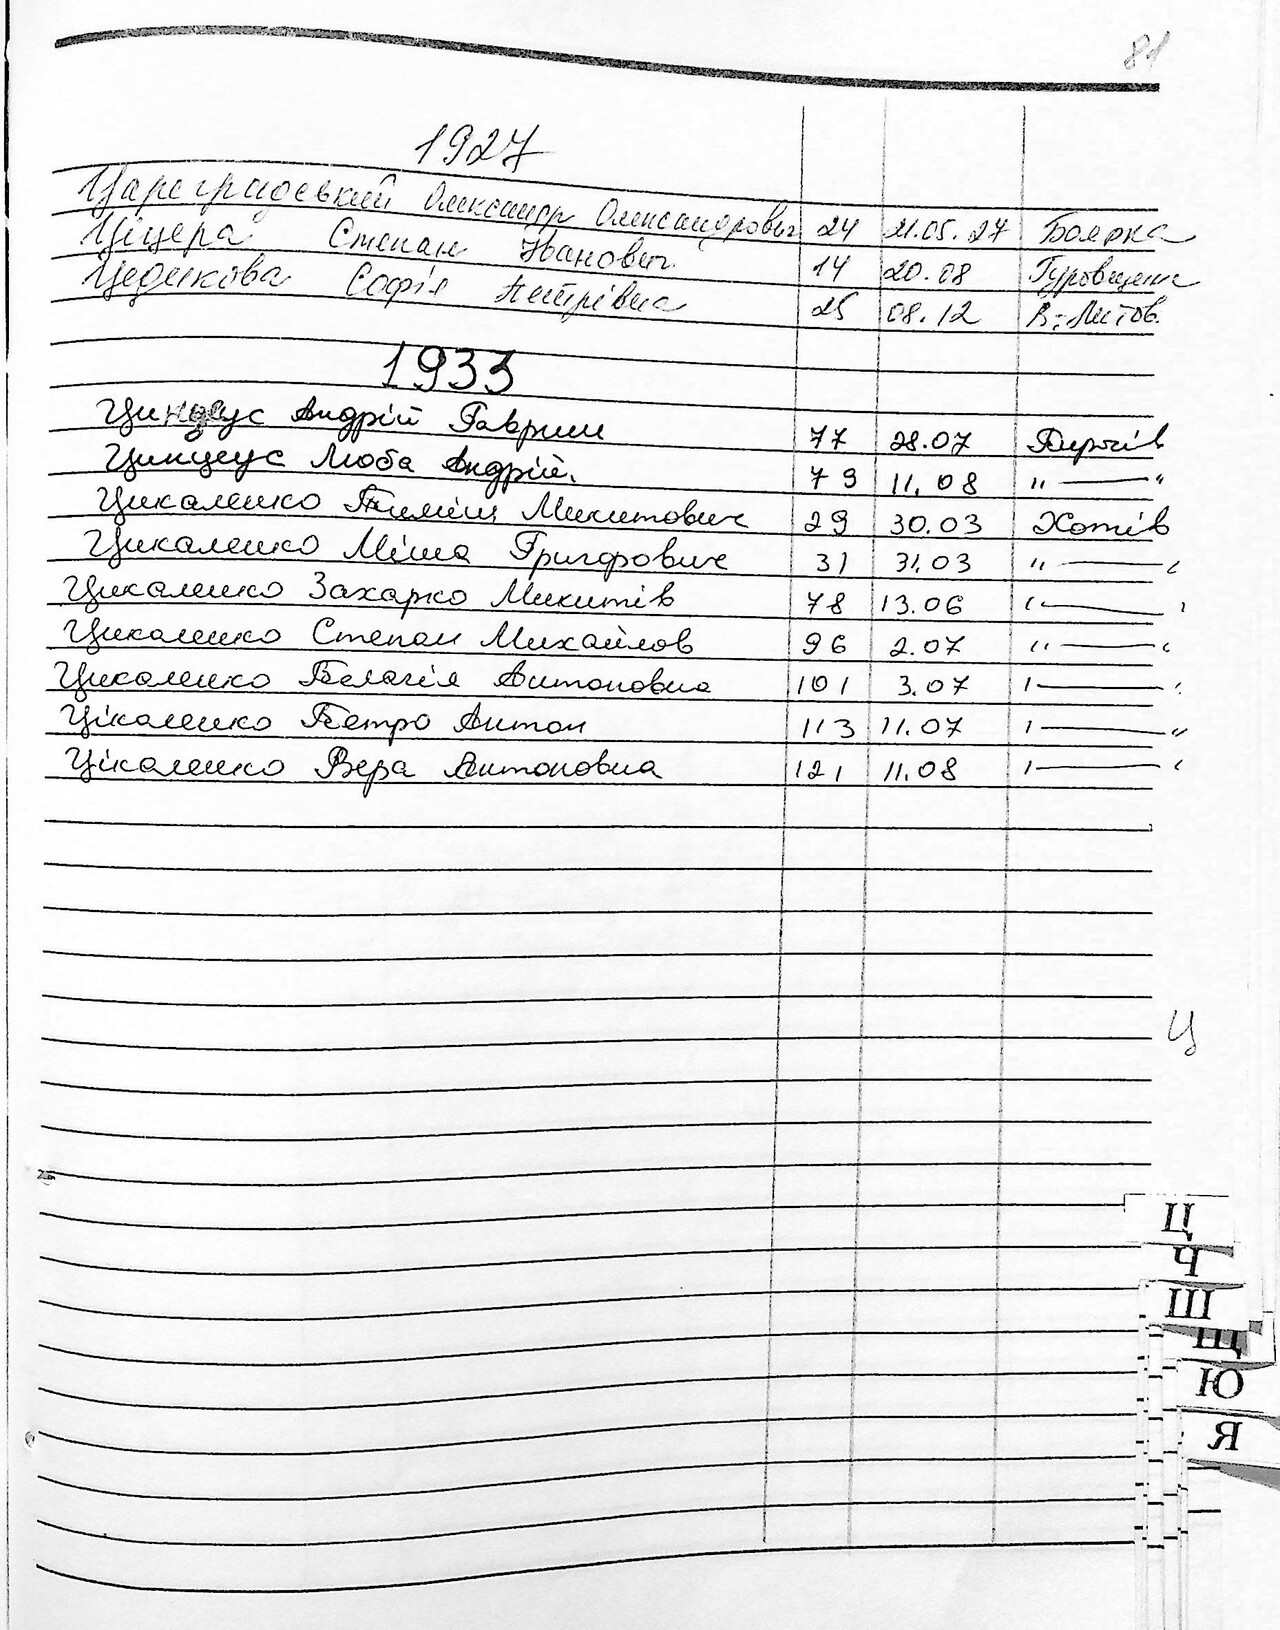 81
1927
Цареградський Олександр Олександрович 24 21.05.27 Боярка
Ціцера Степан Іванович 14 20.08 Гуровщина
Цедікова Софія Петрівна 25 08.12 В-Литов.
1933
Андрій Гаврил 77 28.07
Цинцеус Люба Андрій. 79 11.08 " — "
Цикаленко Пиміш Микитович 29 30.03 Хотів
Цикаленко Міша Григорович 31 31.03 " — "
Цикаленко Захарко Микитів 78 13.06 " — "
Цикаленко Степан Михайлов 96 2.07 " — "
Цикаленко Пелагія Антоновна 101 3.07 " — "
Цікаленко Петро Антон 113 11.07 " — "
Цікаленко Вера Антоновна 121 11.08 " — "
Ц
Ц
Ч
Ш
Щ
Ю
Я